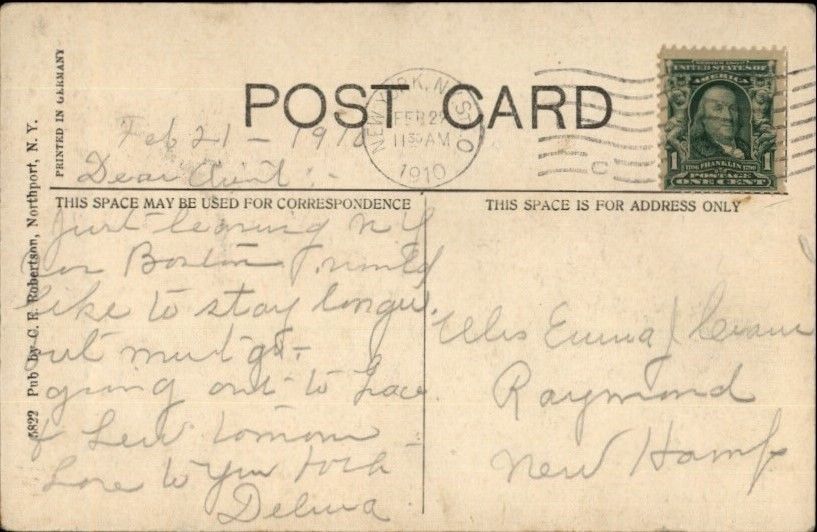 POST CARD
NEW YORK, N.Y. STA. O
FEB 22
11 30 AM
1910
UNITED STATES OF
AMERICA
1 FRANKLIN 1
POSTAGE
ONE CENT
PRINTED IN GERMANY
5822 Pub by C. E. Robertson, Northport, N. Y.
Feb 21 - 1910
Dear Aunt :-
THIS SPACE MAY BE USED FOR CORRESPONDENCE
Just leaving N Y
for Boston would
like to stay longer.
but must go -
going out to
& tomorrow
Love to you both
Delma
THIS SPACE IS FOR ADDRESS ONLY
Emma
Raymond
New Hamp